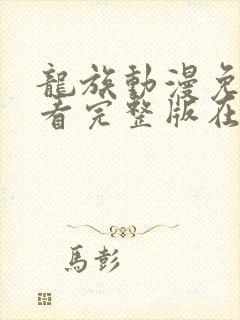 龍族動漫免
看完整版在
馬彭